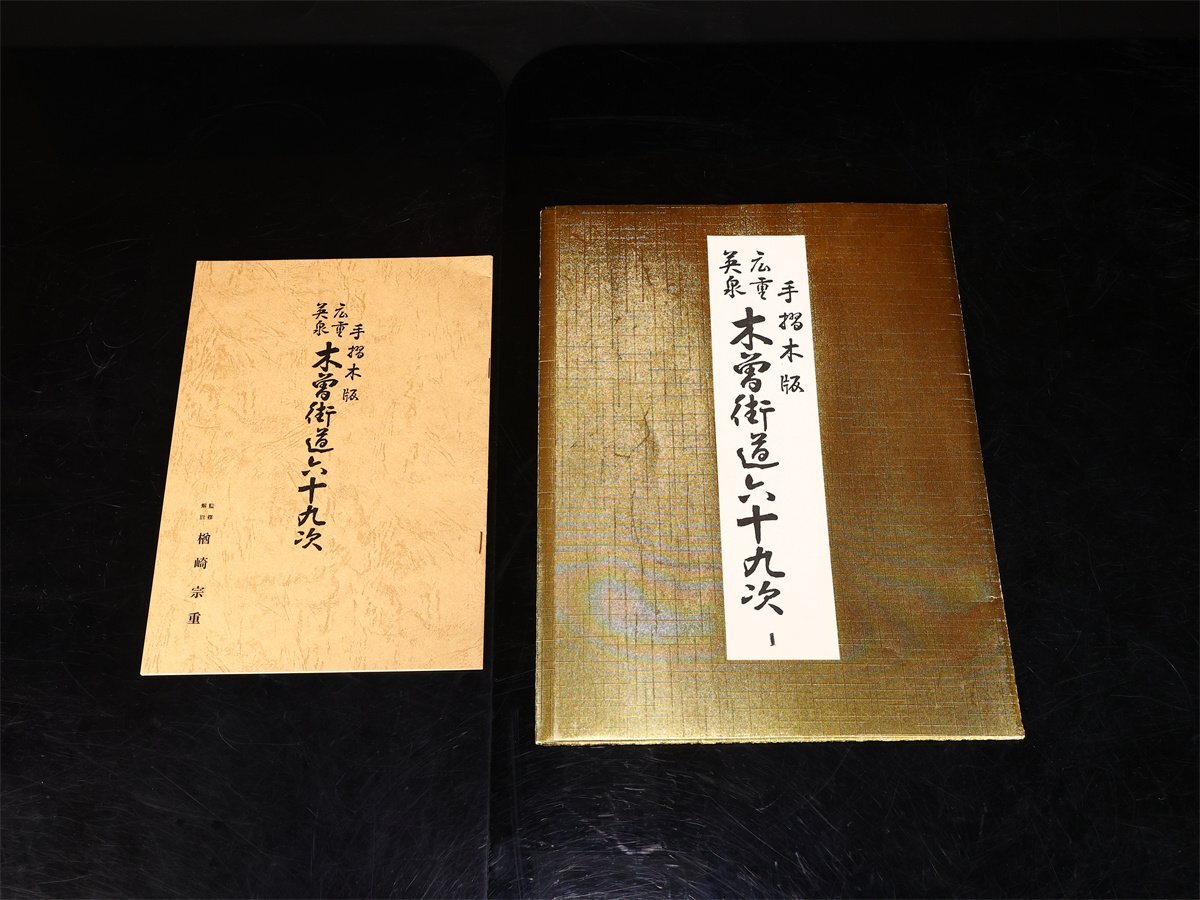 手摺木版
広重
英泉
木曽街道六十九次
監修
解説
楢崎宗重
手摺木版
広重
英泉
木曽街道六十九次
1